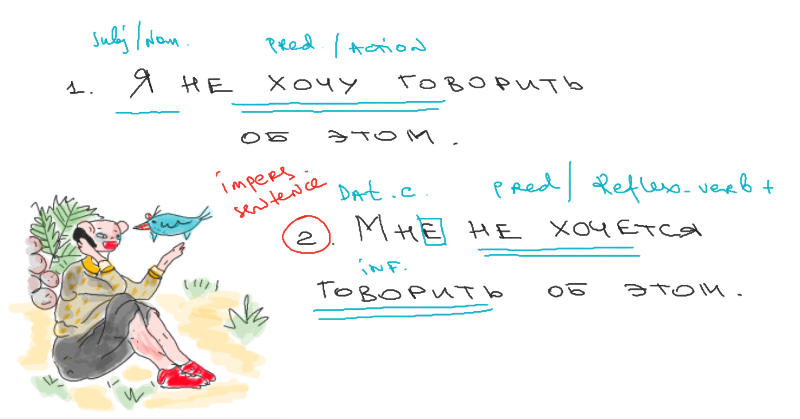 Subj/Nom. Pred. / Action
1. Я НЕ ХОЧУ ГОВОРИТЬ
ОБ ЭТОМ.
impers. sentence
Dat. c. Pred / Reflex. verb +
2. МНЕ НЕ ХОЧЕТСЯ
inf.
ГОВОРИТЬ ОБ ЭТОМ.